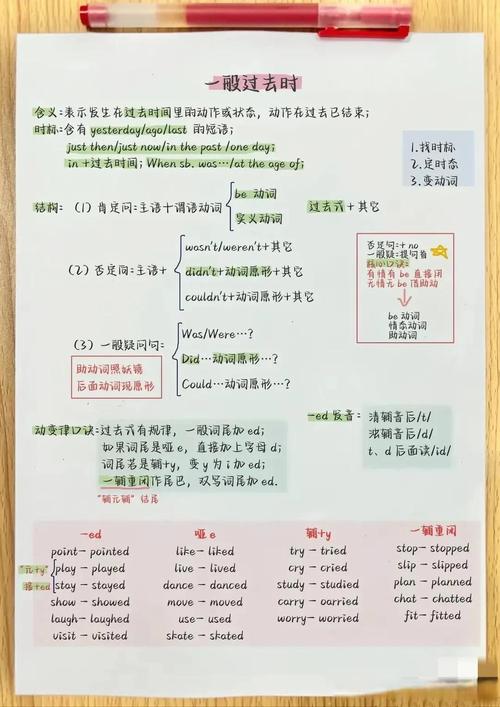 一般过去时
含义:表示发生在过去时间里的动作或状态，动作在过去已结束;
时标:含有 yesterday/ago/last 的短语;
just then/just now/in the past /one day;
in +过去时间; When sb. was…/at the age of;
1.找时标
2.定时态
3.变动词
结构: (1) 肯定问:主语十谓语动词
be 动词
实义动词
过去式+其它
(2) 否定问:主语+
wasn't/weren't+其它
didn't+动词原形+其它
couldn't+动词原形+其它
否定句:+ no
一般疑=提句首
核心口诀:
有情有 be 直接闭
无情无 be 借助动
be 动词
情态动词
助动词
(3) 一般疑问句:
Was/Were…?
Did…动词原形…?
Could…动词原形…?
助动词照妖镜
后面动词现原形
动变律口诀:过去式有规律，一般词尾加 ed;
如果词尾是哑 e，直接加上字母 d;
词尾若是辅+y，变 y 为 i 加 ed;
一辅重闭作尾巴，双写词尾加 ed.
"辅元辅" 结尾
-ed 发音:
清辅音后/t/
浊辅音后/d/
t、d 后面读/id/
-ed
point- pointed
"元+y"
接+ed
play- played
stay- stayed
show- showed
laugh- laughed
visit- visited
哑 e
like- liked
live- lived
dance- danced
move- moved
use- used
skate- skated
辅+y
try- tried
cry- cried
study- studied
carry- oarried
worry-worried
一辅重闭
stop- stopped
slip- slipped
plan- planned
chat- chatted
fit- fitted